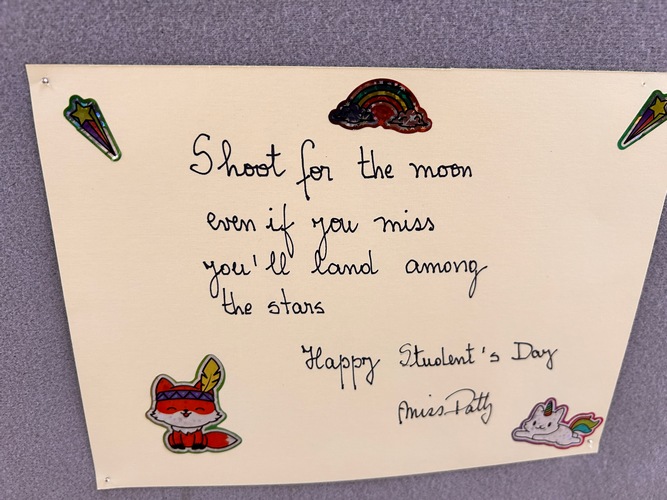 Shoot for the moon
even if you miss
you'll land among
the stars
Happy Student's Day
Miss Patty